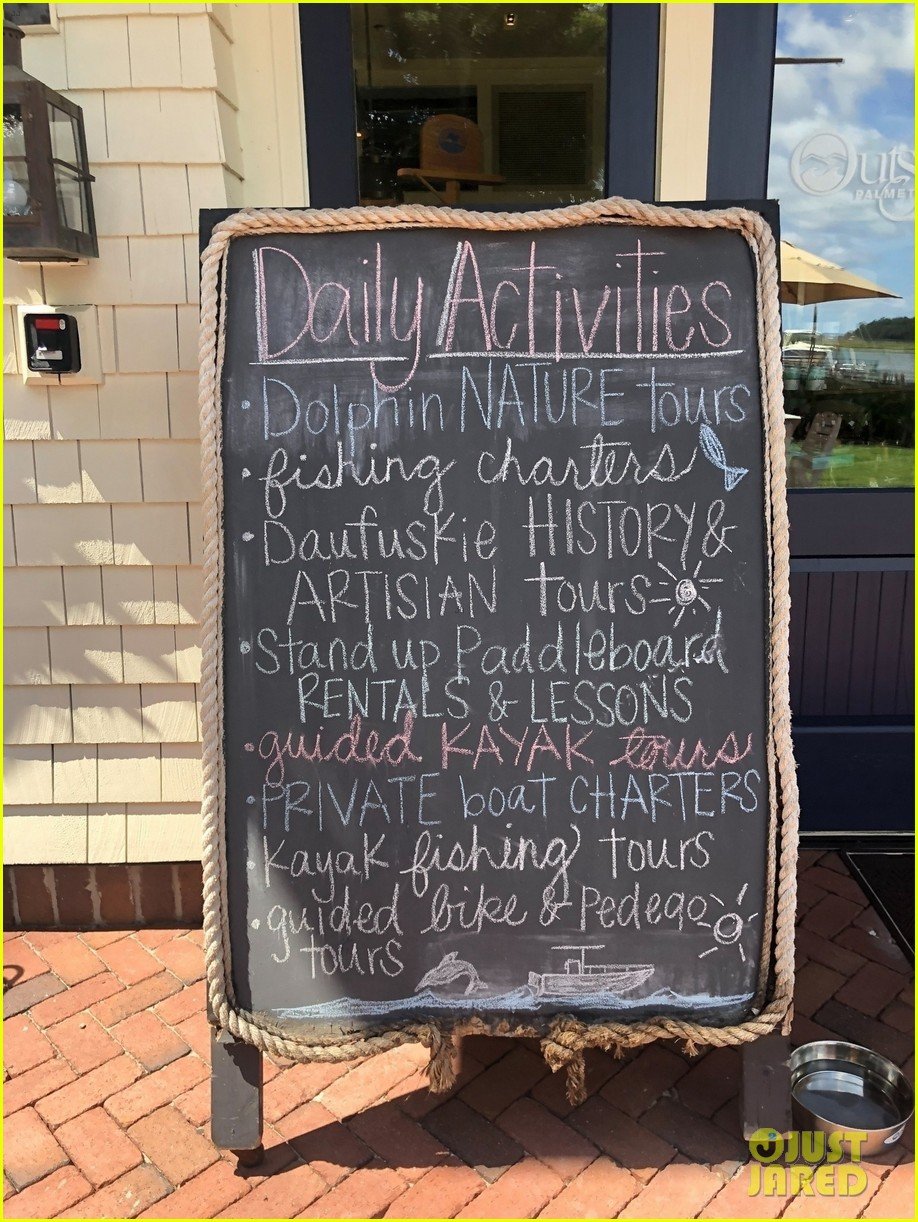 Outs
PALMET
Daily Activities
• Dolphin NATURE tours
• fishing charters
• Daufuskie HISTORY &
ARTISIAN tours
• Stand up Paddleboard
RENTALS & LESSONS
• guided KAYAK tours
• PRIVATE boat CHARTERS
• Kayak fishing tours
• guided bike & Pedego
tours
JUST
JARED